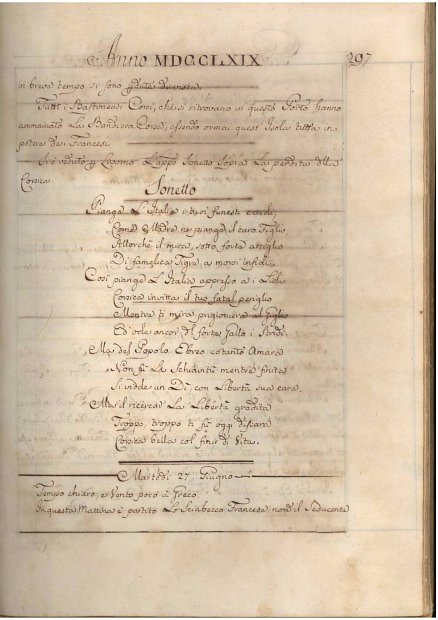 Anno MDCCLXIX
297
in breve tempo si sono
Tutti i Bastimenti Corsi, che si ritrovano in questo Porto hanno
ammainato La Bandiera Corsa, essendo ormai quest' Isola tutta in
potere dei Francesi
Si è veduto Livorno L'app.o Sonetto Sopra La perdita della
Corsica
Sonetto
Piange L'Italia i tuoi funesti eccidi,
Come Madre piange il caro Figlio
Allorchè il mira, sotto forte artiglio
Di famelica Tigre, a morsi infidi
Così piange L'Italia appresso a i Lidi
Corsica invitta il tuo fatal periglio
Mentre ti mira prigioniera al figlio
Ed ode ancor del forte Gallo i
Ma del Popolo Ebreo cotanto Amara
Non fù La Schiavitù mentre finita
Si vidde un Dì, con Libertà sua cara.
Ma il ricercar La Libertà gradita
Troppo troppo ti fù oggi discara
Corsica bella col finir di Vita.
Martedì 27 Giugno
Tempo chiaro, e Vento poco a Greco.
In questa Mattina è partito Lo Sciabecco Francese, nom.o il Seducente